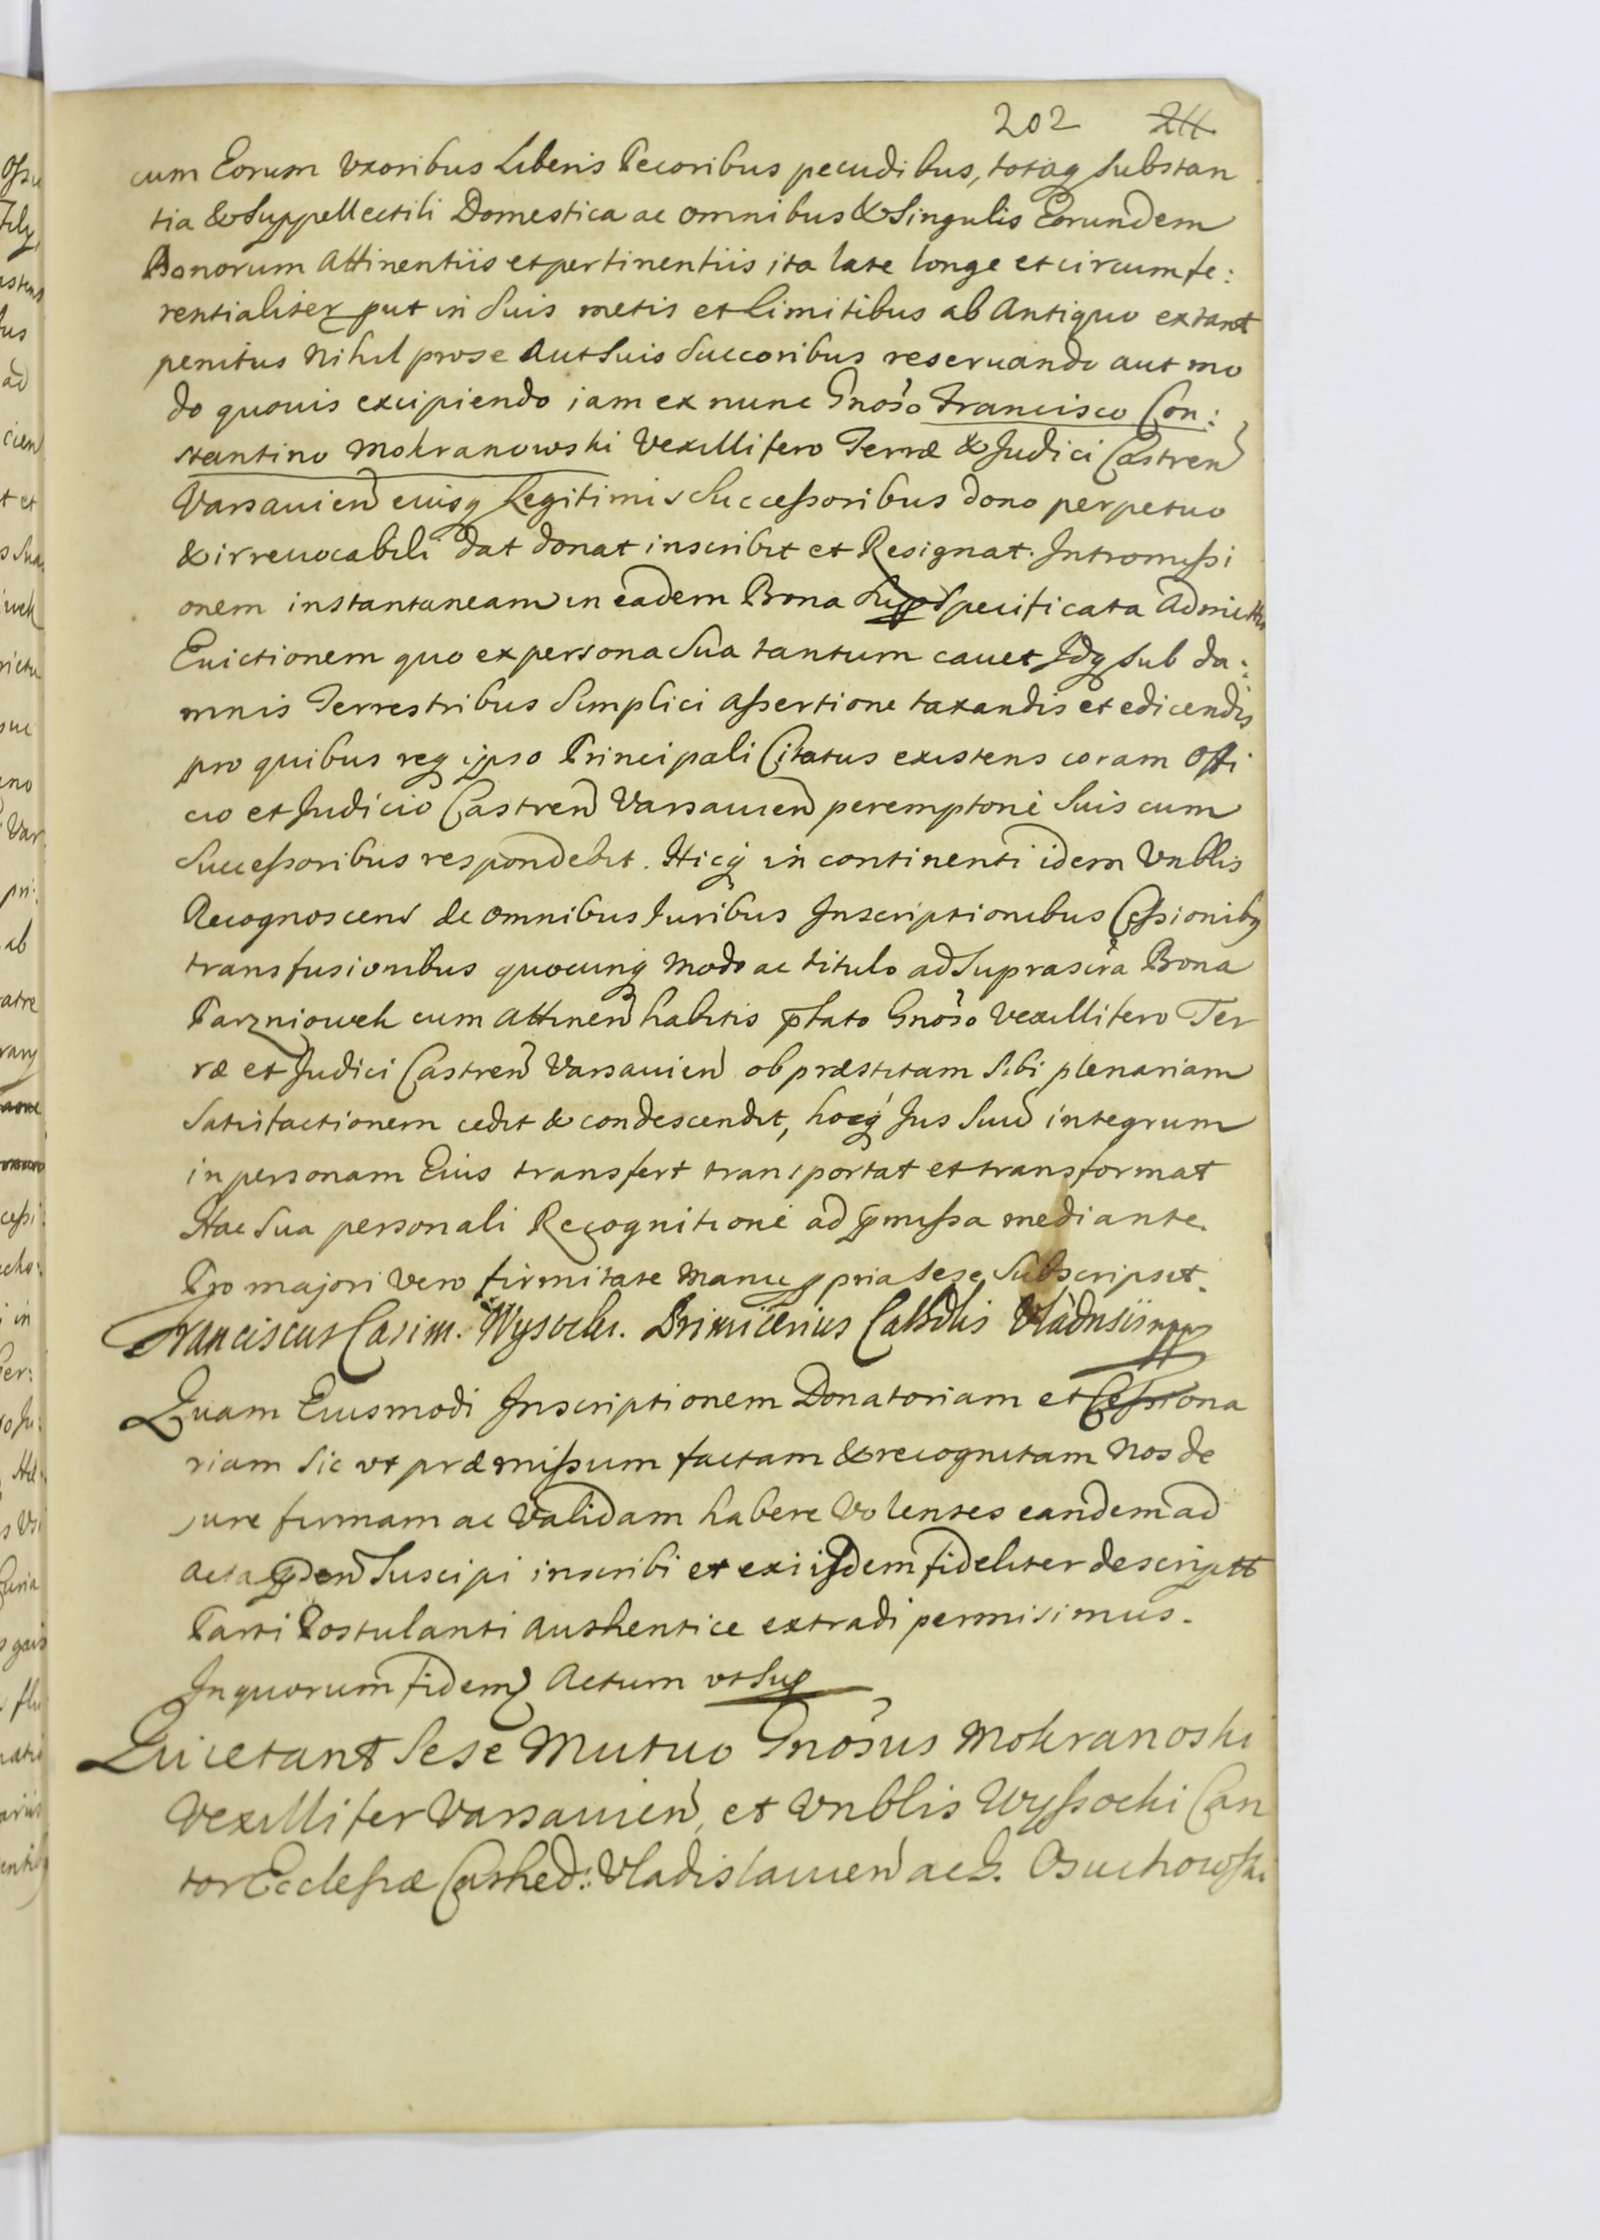 202 211
cum Eorum Uxoribus Liberis Pecoribus pecudibus, totaq substan
tia & Suppellectili Domestica ac omnibus & Singulis Eorundem
Bonorum Attinentiis et pertinentiis ita late longe et circumfe:
rentialiter put in Suis metis et limitibus ab Antiquo extant
penitus Nihil pro se Aut Suis Succoribus reservando aut mo
do quovis excipiendo iam ex nunc Gnoso Francisco Con:
stantino Mokranowski Vexillifero Terræ & Judici Castren
Varsavien eiusq Legitimis Successoribus dono perpetuo
& irrevocabili dat donat inscribit et Resignat. Intromissi
onem instantaneam in eadem Bona Sup Specificata Admittit
Evictionem quo ex persona Sua tantum cavet Idq sub da:
mnis Terrestribus Simplici Assertione taxandis et edicendis
pro quibus req ipso Principali Citatus existens coram Offi
cio et Judicio Castren Varsavien peremptorie Suis cum
Successoribus respondebit. Hicq in continenti idem Vnblis
Recognoscens de omnibus Juribus Inscriptionibus Cessionibq
transfusionibus quocunq Modo ac titulo ad Suprascra Bona
Parzniowek cum Attinen habitis ptato Gnoso Vexillifero Ter
ræ et Judici Castren Varsavien ob præstitam Sibi plenariam
Satisfactionem cedit & condescendit, hocq Jus Suu integrum
in personam Eius transfert transportat et transformat
Hac Sua personali Recognitione ad pmissa mediante.
Pro majori vero firmitate Manu ppria Sese Subscripsit.
Franciscus Casim. Wysocki. Primicerius Cathdlis Vladnsis mpp
Quam Eiusmodi Inscriptionem Donatoriam et Cessiona
riam Sic ut præmissum factam & recognitam Nos de
jure firmam ac Validam habere Volentes eandem ad
Acta pden Suscipi inscribi et ex iisdem fideliter descriptt
Parti Postulanti Authentice extradi permisimus.
In quorum fidem Actum ut Sup
Quietant Sese Mutuo Gnosus Mokranoski
Vexillifer Varsavien, et Vnblis Wyssocki Can
tor Ecclesiæ Cathed: Vladislavien ac G. Osuchowski